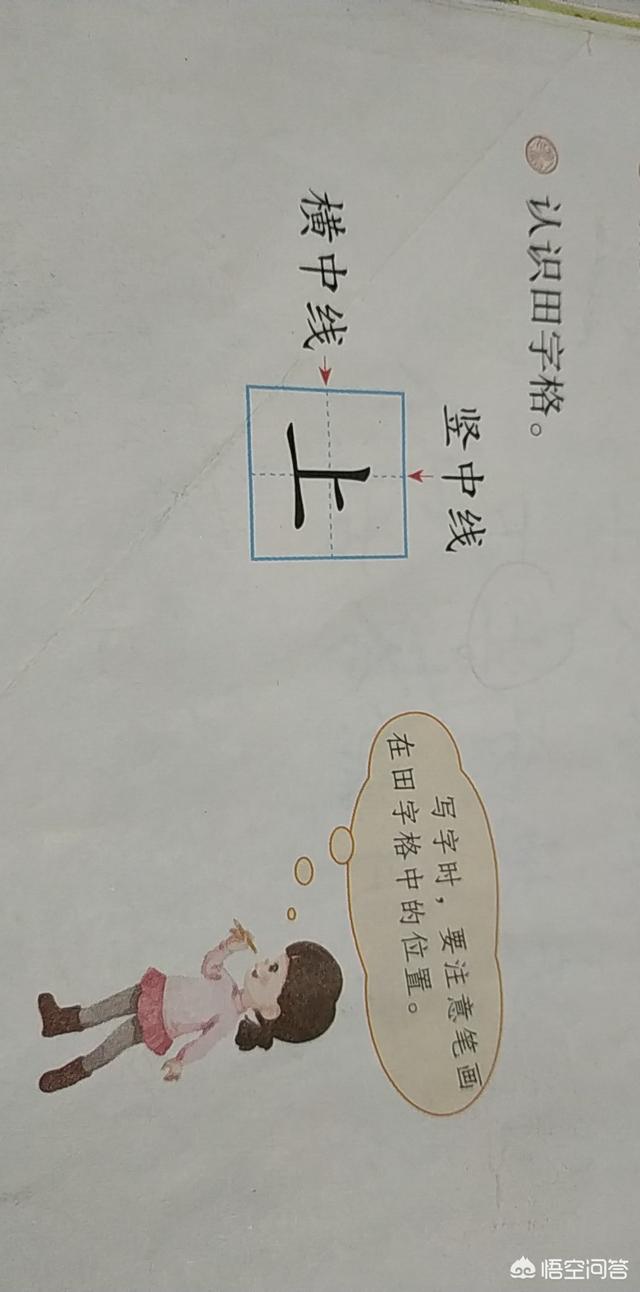 认识田字格。
竖中线
横中线
上
写字时，要注意笔画
在田字格中的位置。
悟空问答